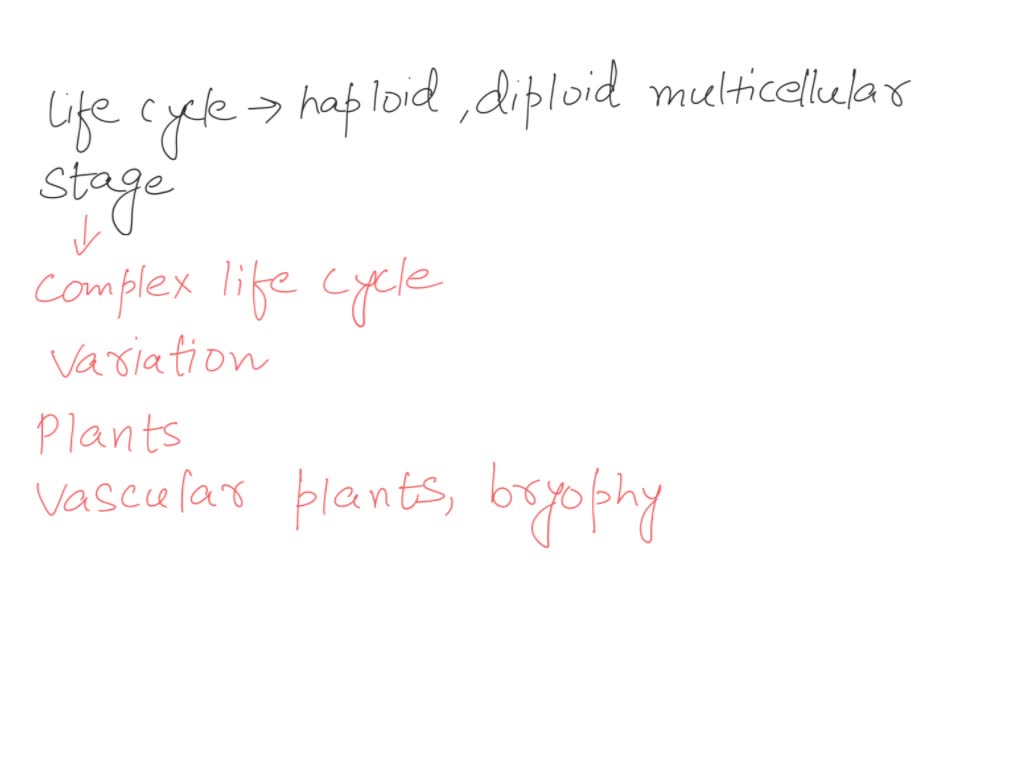 life cycle → haploid, diploid multicellular
stage
↓
Complex life cycle
variation
Plants
vascular plants, bryophy